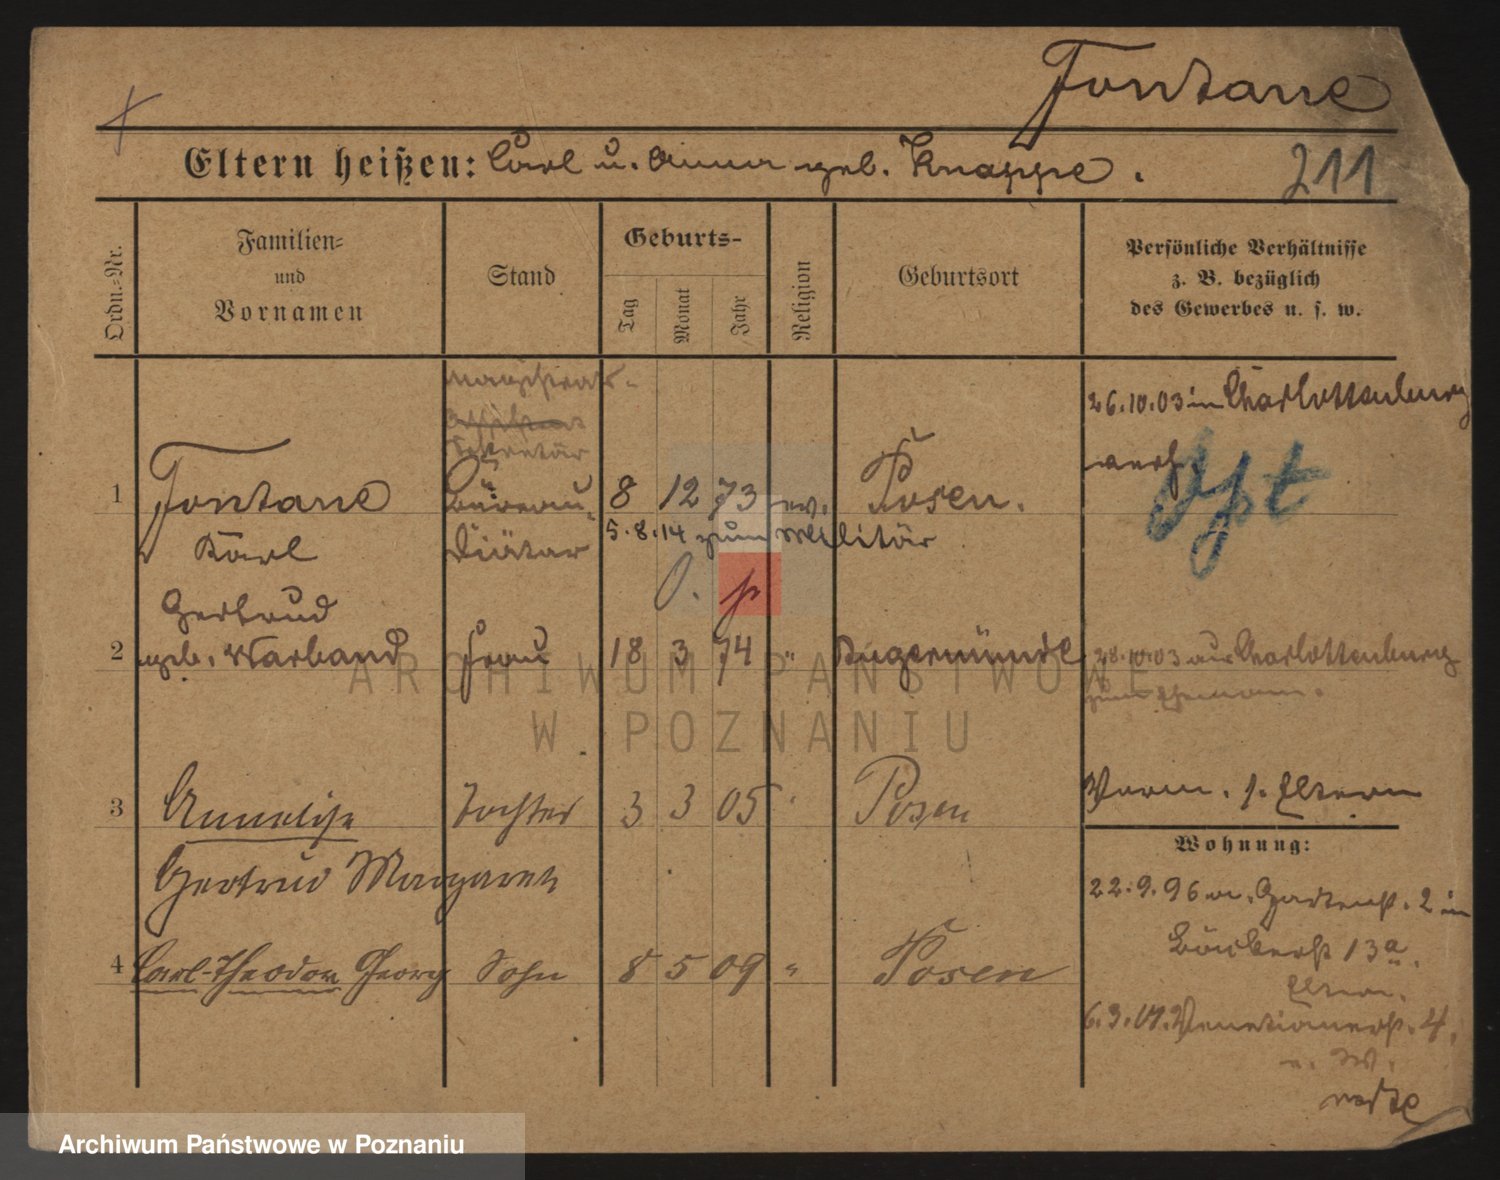 Fontane
Eltern heißen: Carl u. Anna geb. Knappe.
211
Ordn.-Nr.
Familien-
und
Vornamen
Stand
Geburts-
Tag
Monat
Jahr
Religion
Geburtsort
Persönliche Verhältnisse
z. B. bezüglich
des Gewerbes u. s. w.
Magistrats-
Sekretär
26.10.03 in Charlottenburg
verh.
1 Fontane Büreau- 8 12 73 ev. Posen.
Karl Diätar 5.8.14 zum Militär
Opt
Gertrud
2 geb. Warband Frau 18 3 74 " Angermünde 28.10.03 aus Charlottenburg
zum Ehemann.
3 Annelise Tochter 3 3 05 " Posen Vorm. s. Eltern
Gertrud Margarete
4 Carl-Theodor Georg Sohn 8 5 09 " Posen
Wohnung:
22.9.96 v. Gartenst. 2 in
13a.
Eltern.
Venetianerst. 4.
ARCHIWUM PAŃSTWOWE
W POZNANIU
Archiwum Państwowe w Poznaniu